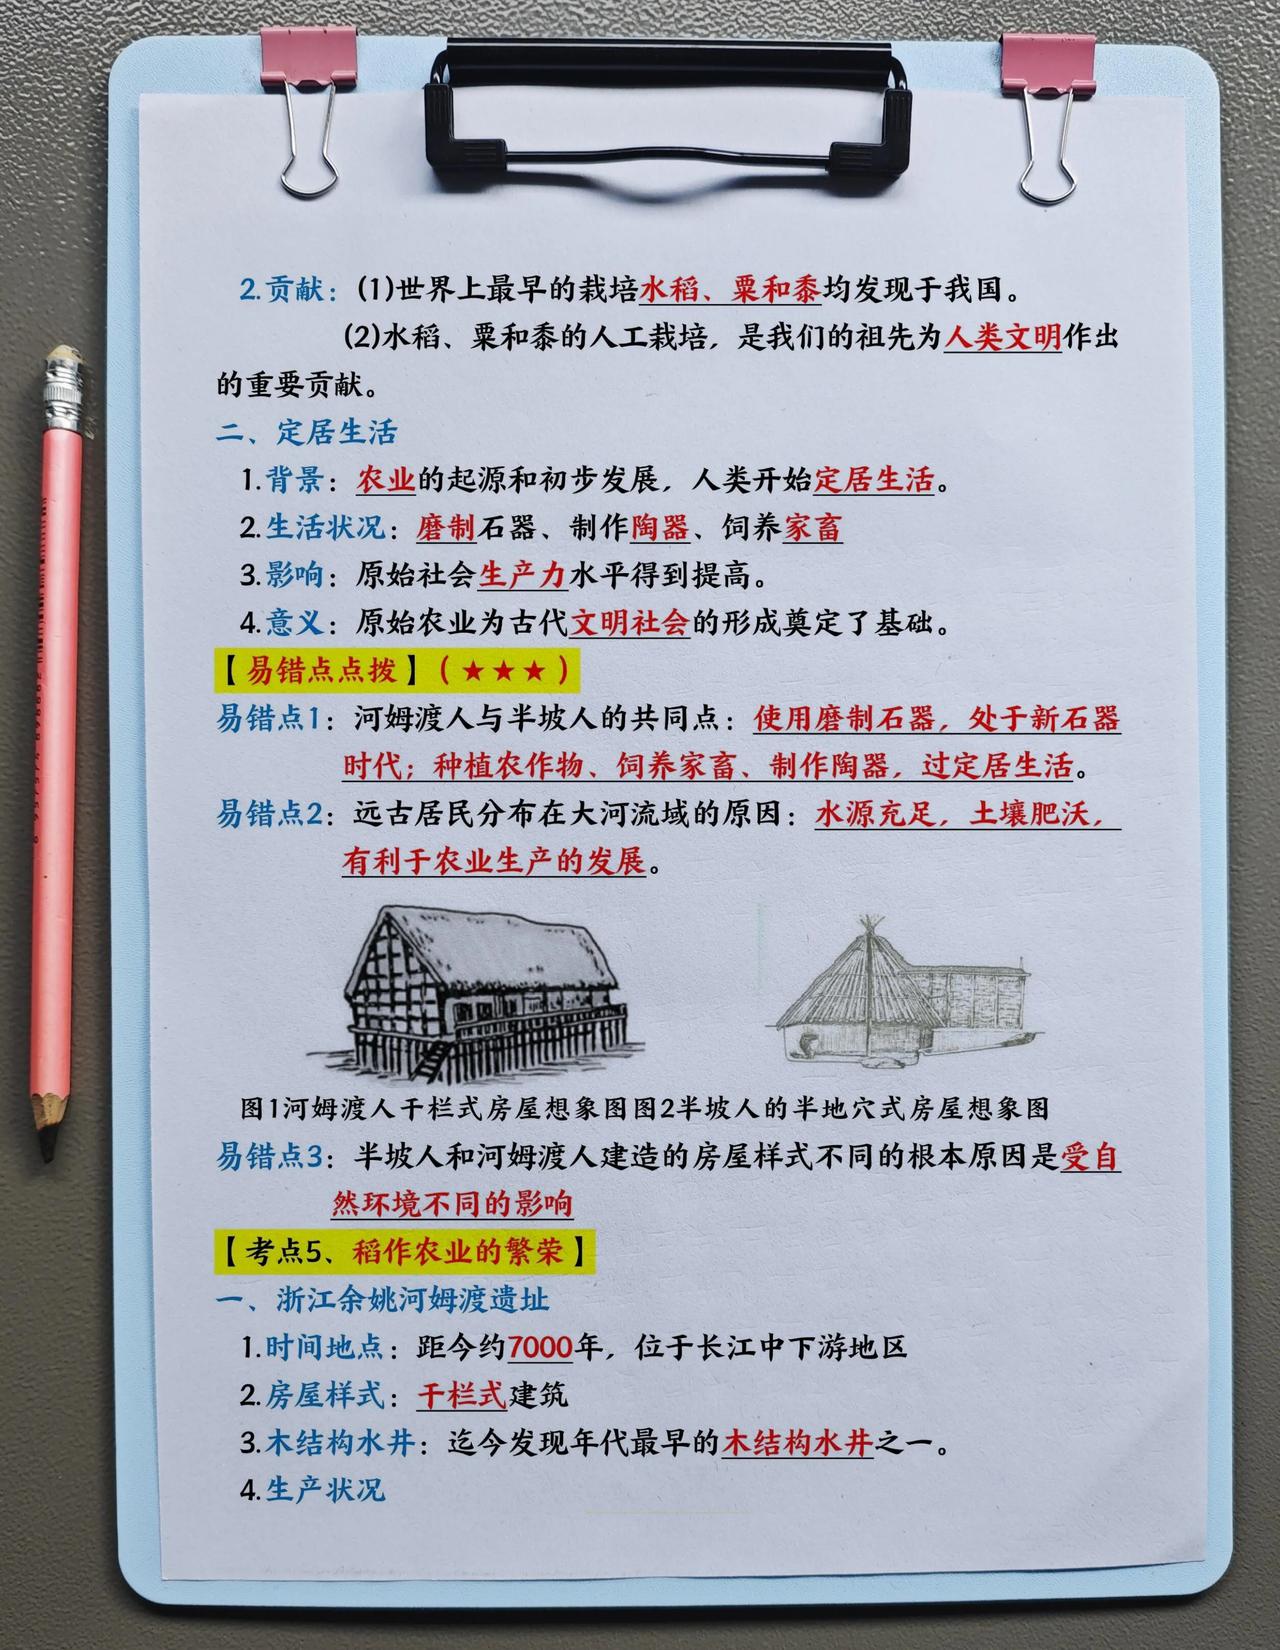 2.贡献：(1)世界上最早的栽培水稻、粟和黍均发现于我国。
(2)水稻、粟和黍的人工栽培，是我们的祖先为人类文明作出
的重要贡献。
二、定居生活
1.背景：农业的起源和初步发展，人类开始定居生活。
2.生活状况：磨制石器、制作陶器、饲养家畜
3.影响：原始社会生产力水平得到提高。
4.意义：原始农业为古代文明社会的形成奠定了基础。
【易错点点拨】（★★★）
易错点1：河姆渡人与半坡人的共同点：使用磨制石器，处于新石器
时代；种植农作物、饲养家畜、制作陶器，过定居生活。
易错点2：远古居民分布在大河流域的原因：水源充足，土壤肥沃，
有利于农业生产的发展。
图1河姆渡人干栏式房屋想象图图2半坡人的半地穴式房屋想象图
易错点3：半坡人和河姆渡人建造的房屋样式不同的根本原因是受自
然环境不同的影响
【考点5、稻作农业的繁荣】
一、浙江余姚河姆渡遗址
1.时间地点：距今约7000年，位于长江中下游地区
2.房屋样式：干栏式建筑
3.木结构水井：迄今发现年代最早的木结构水井之一。
4.生产状况